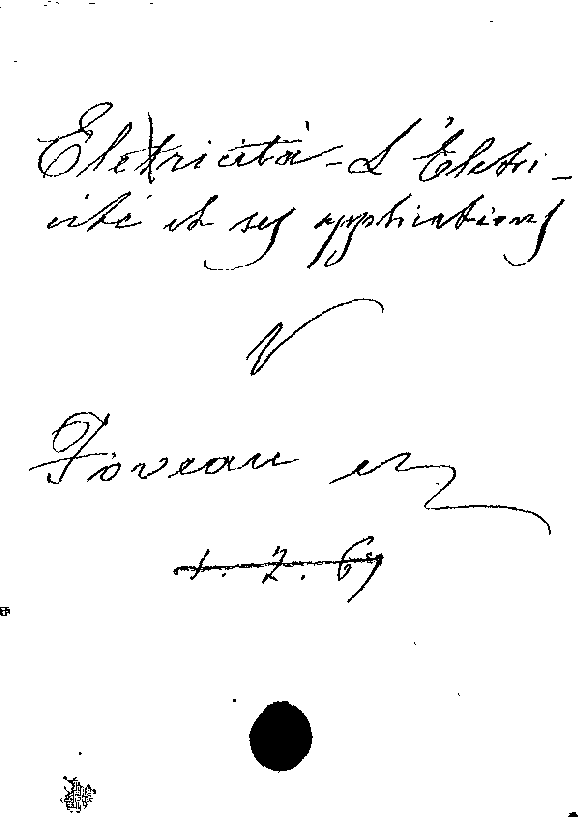 Eletricità - L'Életri-
cité et ses applications
V
Foveau
1. 7. 69